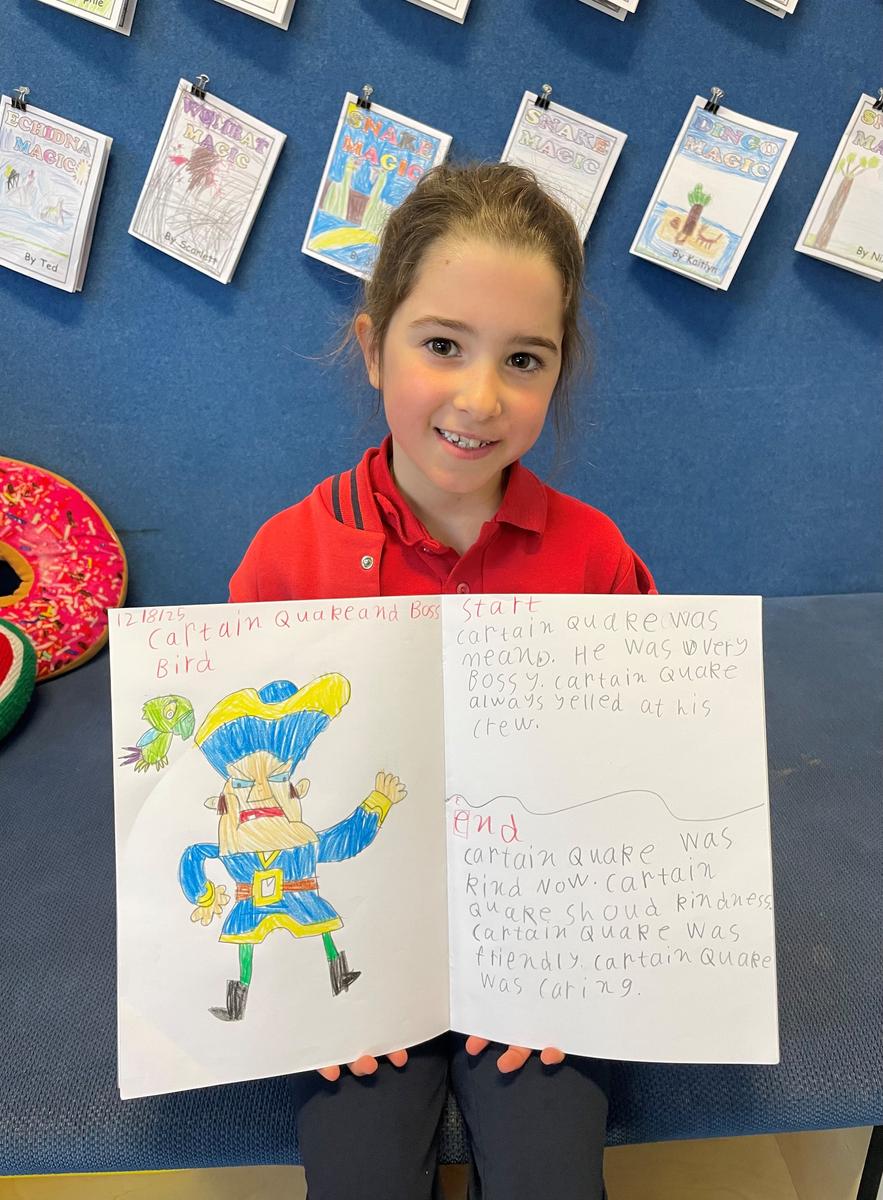 ECHIDNA
MAGIC
By Ted
WOMBAT
MAGIC
By Scarlett
SNAKE
MAGIC
SNAKE
MAGIC
DINGO
MAGIC
By Kaitlyn
12/8/25
Cartain Quake and Boss
Bird
Start
cartain Quake was
mean. He was very
Bossy. cartain Quake
always yelled at his
crew.
end
cartain Quake was
kind Now. cartain
Quake shoud kindness.
cartain Quake was
friendly. cartain Quake
was caring.